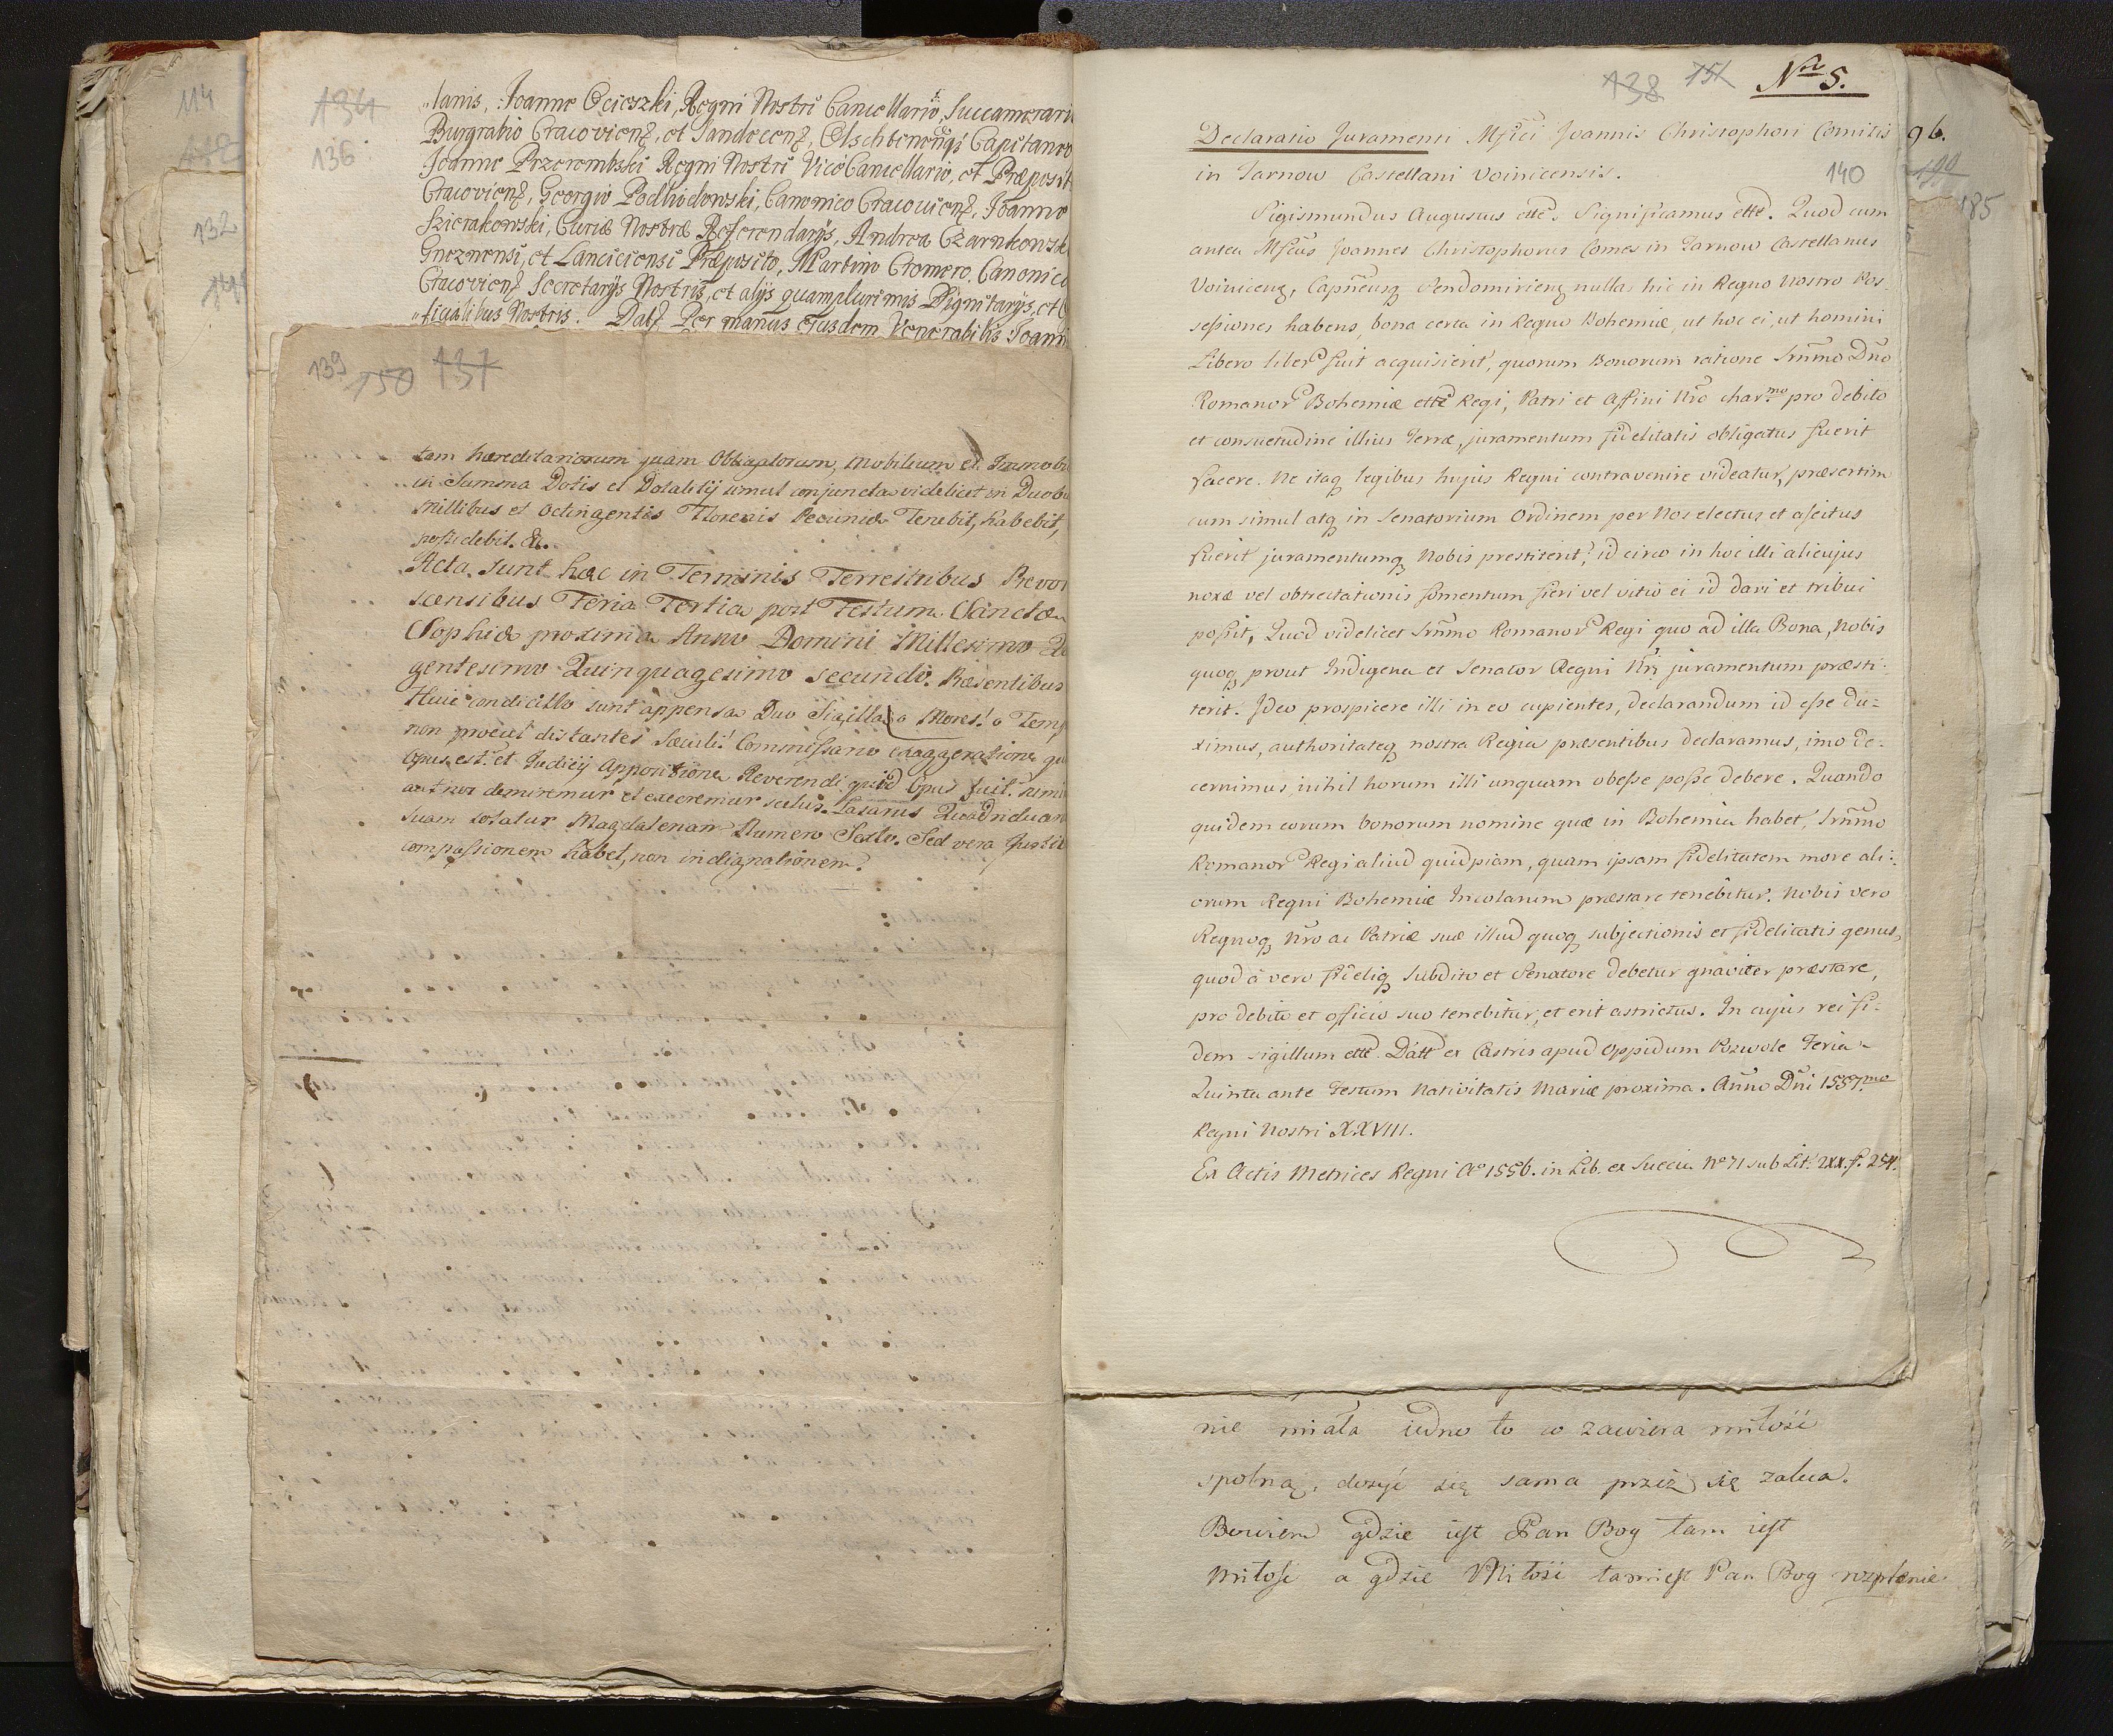 114
112
132
141
134
136
"lanis, Joanne Ocieszki, Regni Nostri Cancellario, Succamerari
Burgrabio Cracovienz, et Sandecenz, Olschtinenqz Capitaneo
Joanne Przerembski Regni Nostri Vice Cancellario, et Præposit
Cracovienz, Georgio Podlodowski, Canonico Cracovienz, Joanne
Szierakowski, Curiæ Nostræ Referendarijs, Andrea Czarnkowsk
Gneznensi, et Lanciciensi Præposito, Martino Cromero Canonico
Cracovienz Secretarijs Nostris, et alijs quamplurimis Dignitarijs, et O
"ficialibus Nostris. Datz Per manus ejusdem Venerabilis Joann
139 150 137
tam hæreditariorum quam Obligatorum, Mobilium et Immobi
in Summa Dotis et Dotalitij simul conjuncta videlicet in Duobu
Millibus et Octingentis Florenis Pecuniæ Tenebit, habebit,
possidebit. &.
Acta sunt hæc in Terminis Terrestribus
scensibus Feria Tertia post Festum Sanctæ
Sophiæ proxima Anno Domini Millesimo
gentesimo Quinquagesimo secundo. Præsentibus
Huic condicillo sunt appensa Duo Sigilla o Mores! o Temp
non procul distantes sæculi! Commissario exaggeratione
Opus est. et Judicij Appositione Reverendi quid Opus fuit.
aut nos demiremur et execremur scelus. Lazarus Quadriduan
suam solatur Magdalenam Numero Sexto. Sed vera Justit
compassionem habet, non indignationem?
138 151 Nro 5.
Declaratio Juramenti Mfici Joannis Christophori Comitis
in Tarnow Castellani Voinicensis.
140
Sigismundus Augustus ettc. Significamus ettc. Quod cum
antea Mfcus Joannes Christophorus Comes in Tarnow Castellanus
Voinicenz, Capneusq Sendomirienz nullas hic in Regno Nostro Pos-
sessiones habens, bona certa in Regno Bohemiæ, ut hoc ei, ut homini
Libero liber fuit acquisierit, quorum Bonorum ratione Srnmo Dno
Romanor Bohemiæ ettc Regi, Patri et Affini Nro char.mo pro debito
et consuetudine illius Terræ, juramentum fidelitatis obligatus fuerit
facere. Ne itaq legibus hujus Regni contravenire videatur, præsertim
cum simul atq in Senatorium Ordinem per Nos electus et ascitus
fuerit juramentumq Nobis prestiterit, id circo in hoc illi alicujus
noxæ vel obtrectationis fomentum fieri vel vitio ei id dari et tribui
possit, Quod videlicet Srnmo Romanor Regi quo ad illa Bona, Nobis
quoq prout Indigena et Senator Regni Nri juramentum præsti-
terit. Ideo prospicere illi in eo cupientes, declarandum id esse du-
ximus, authoritateq nostra Regia præsentibus declaramus, imo de-
cernimus, nihil horum illi unquam obesse posse debere. Quando
quidem eorum bonorum nomine quæ in Bohemia habet, Srnmo
Romanor Regi aliud quidpiam, quam ipsam fidelitatem more ali-
orum Regni Bohemiæ Incolarum præstare tenebitur. Nobis vero
Regnoq Nro ac Patriæ suæ illud quoq subjectionis et fidelitatis genus,
quod à vero fideliq Subdito et Senatore debetur gnaviter præstare,
pro debito et officio suo tenebitur, et erit astrictus. In cujus rei fi-
dem sigillum ettc. Datt ex Castris apud Oppidum Pozwole Feria
Quinta ante Festum Nativitatis Mariæ proxima. Anno Dni 1557mo
Regni Nostri XXVIII.
Ex Actis Metrices Regni Ao 1556. in Lib. ex Succia No 71 sub Lit. 2XX. f. 254.
96.
190
185
nie miała iedno to co zawiera miłość
spolną, dosyć się sama przez się zaleca.
Bowiem gdzie iest Pan Bog tam iest
Miłość a gdzie Miłość tam iest Pan Bog rozplenie